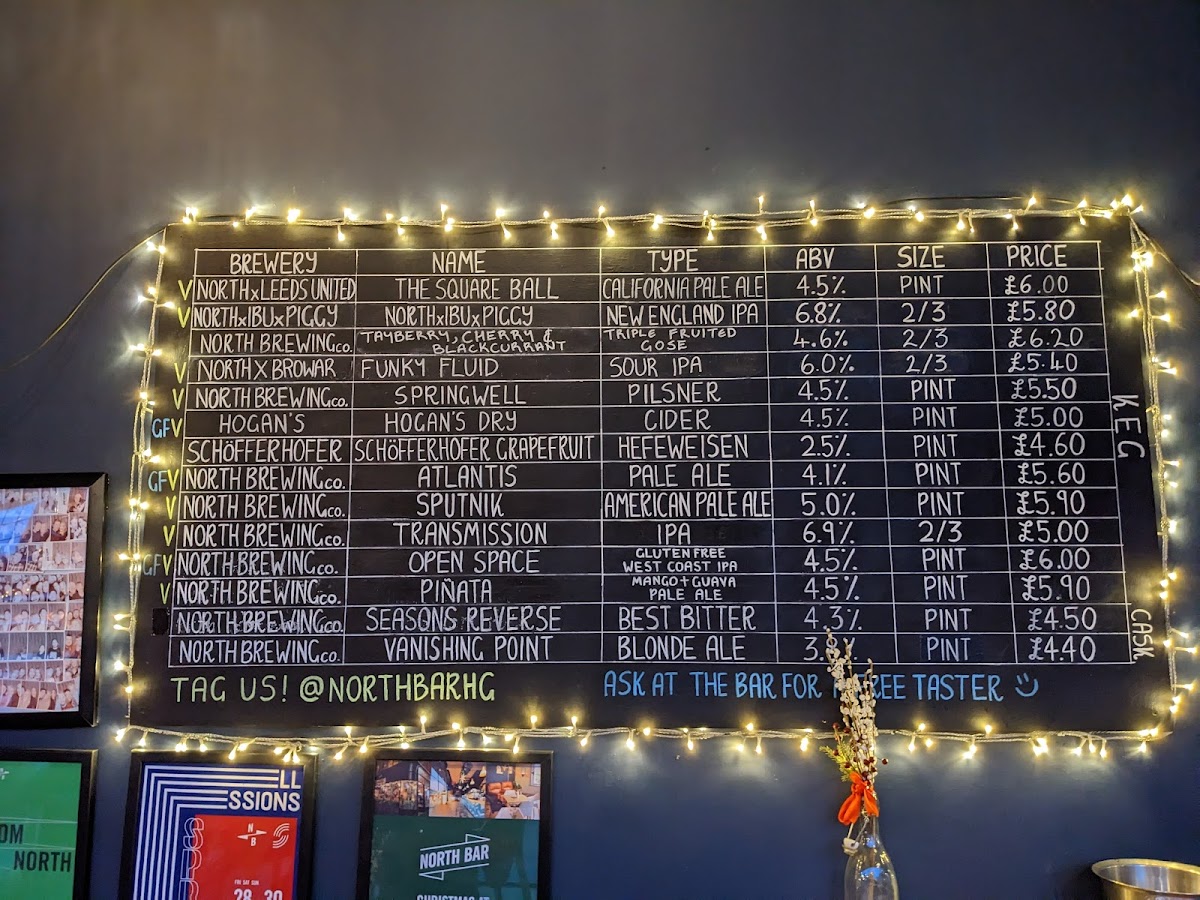 BREWERY NAME TYPE ABV SIZE PRICE
V NORTHxLEEDS UNITED THE SQUARE BALL CALIFORNIA PALE ALE 4.5% PINT £6.00
V NORTHxIBUxPIGGY NORTHxIBUxPIGGY NEW ENGLAND IPA 6.8% 2/3 £5.80
NORTH BREWING CO. TAYBERRY, CHERRY & BLACKCURRANT TRIPLE FRUITED GOSE 4.6% 2/3 £6.20
V NORTH X BROWAR FUNKY FLUID SOUR IPA 6.0% 2/3 £5.40
V NORTH BREWING CO. SPRINGWELL PILSNER 4.5% PINT £5.50
GFV HOGAN'S HOGAN'S DRY CIDER 4.5% PINT £5.00
SCHÖFFERHOFER SCHÖFFERHOFER GRAPEFRUIT HEFEWEISEN 2.5% PINT £4.60
GFV NORTH BREWING CO. ATLANTIS PALE ALE 4.1% PINT £5.60
V NORTH BREWING CO. SPUTNIK AMERICAN PALE ALE 5.0% PINT £5.90
V NORTH BREWING CO. TRANSMISSION IPA 6.9% 2/3 £5.00
GFV NORTH BREWING CO. OPEN SPACE GLUTEN FREE WEST COAST IPA 4.5% PINT £6.00
V NORTH BREWING CO. PIÑATA MANGO + GUAVA PALE ALE 4.5% PINT £5.90
NORTH BREWING CO. SEASONS REVERSE BEST BITTER 4.3% PINT £4.50
NORTH BREWING CO. VANISHING POINT BLONDE ALE PINT £4.40
KEG
CASK
TAG US! @NORTHBARHG
ASK AT THE BAR FOR FREE TASTER
OM
NORTH
LL
SSIONS
N
B
FRI SAT SUN
28 30
NORTH BAR
CHRISTMAS AT